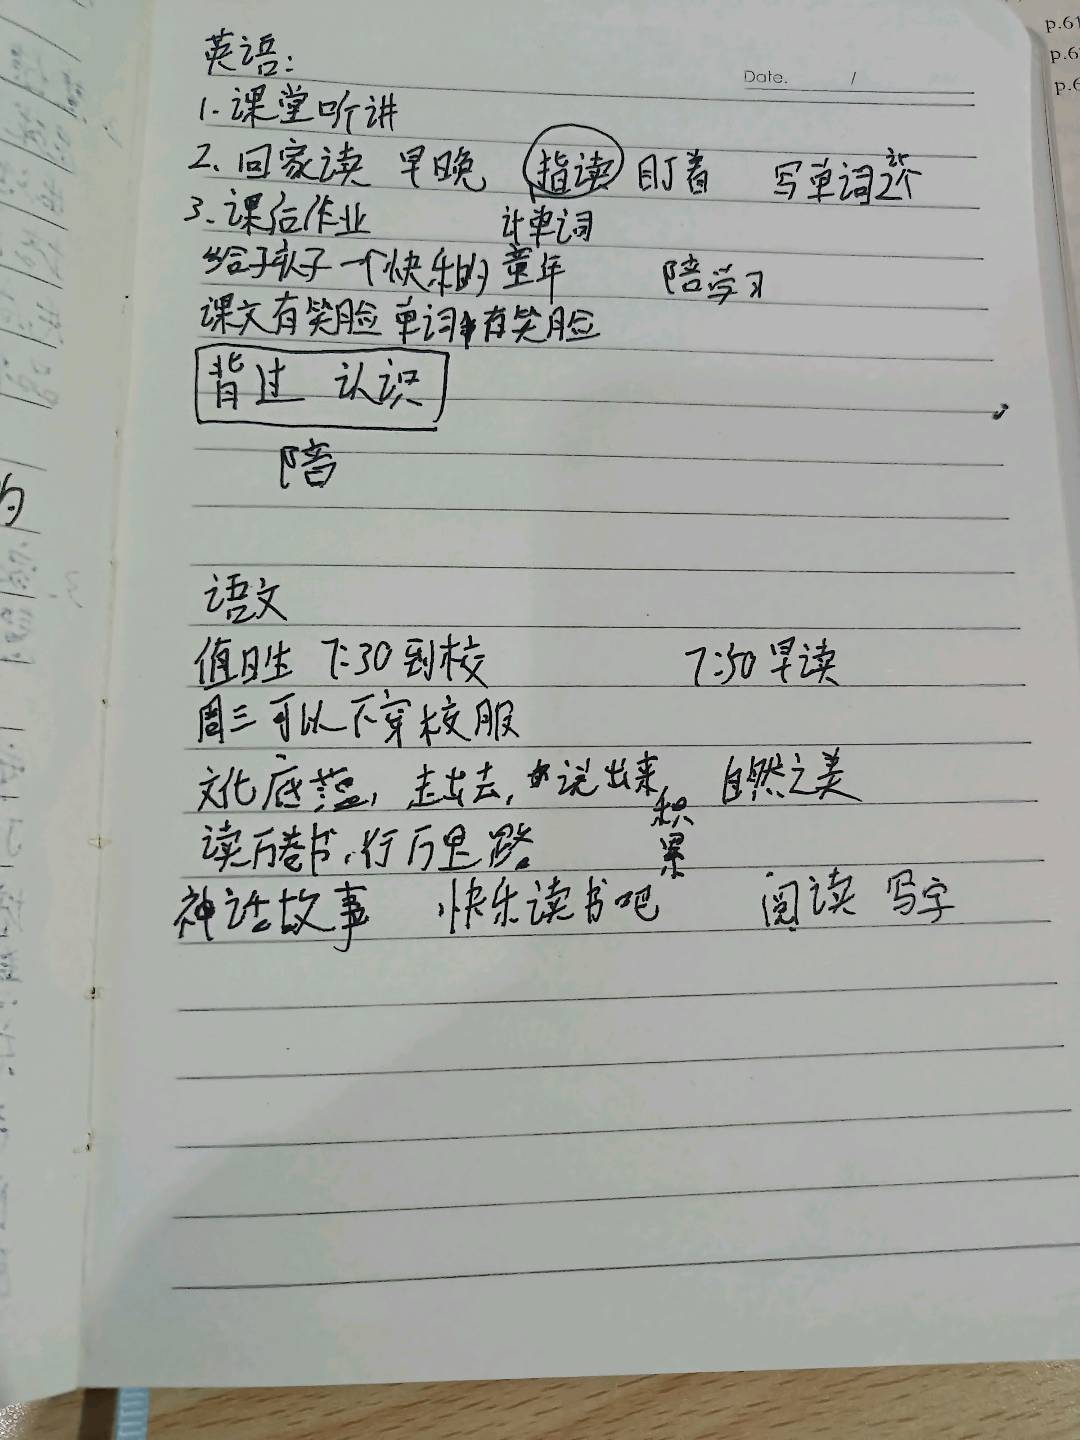 英语:
Date. /
1. 课堂听讲
2. 回家读 早晚 指读 盯着 写单词2个
3. 课后作业 计单词
给予孩子一个快乐的童年 陪学习
课文有笑脸 单词有笑脸
背过 认识
陪
语文
值日生 7:30到校 7:50早读
周三可以不穿校服
文化底蕴, 走出去, 说出来 自然之美
积累
读万卷书, 行万里路
神话故事 快乐读书吧 阅读 写字
p.61